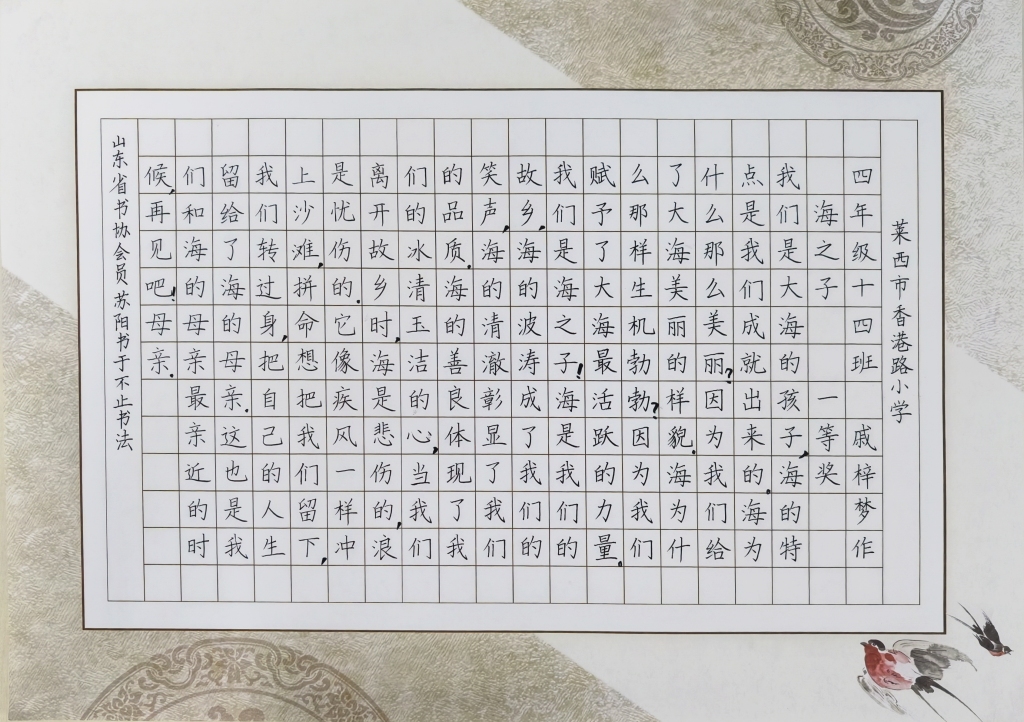 莱西市香港路小学
四年级十四班 戚梓梦作
海之子 一等奖
我们是大海的孩子,海的特
点是我们成就出来的,海为
什么那么美丽?因为我们给
了大海美丽的样貌.海为什
么那样生机勃勃?因为我们
赋予了大海最活跃的力量.
我们是海之子!海是我们的
故乡,海的波涛成了我们的
笑声,海的清澈彰显了我们
的品质.海的善良体现了我
们的冰清玉洁的心,当我们
离开故乡时,海是悲伤的,浪
是忧伤的.它像疾风一样冲
上沙滩,拼命想把我们留下,
我们转过身,把自己的人生
留给了海的母亲.这也是我
们和海的母亲最亲近的时
候,再见吧!母亲.
山东省书协会员 苏阳书于不止书法